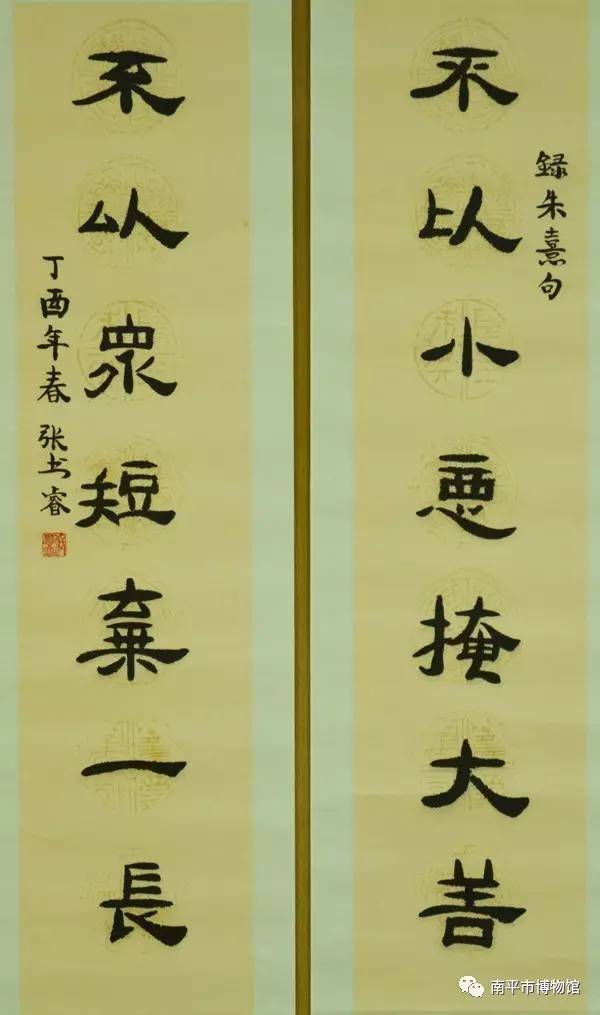 録朱熹句
不以小惡掩大善
不以眾短棄一長
丁酉年春 张书睿
南平市博物馆